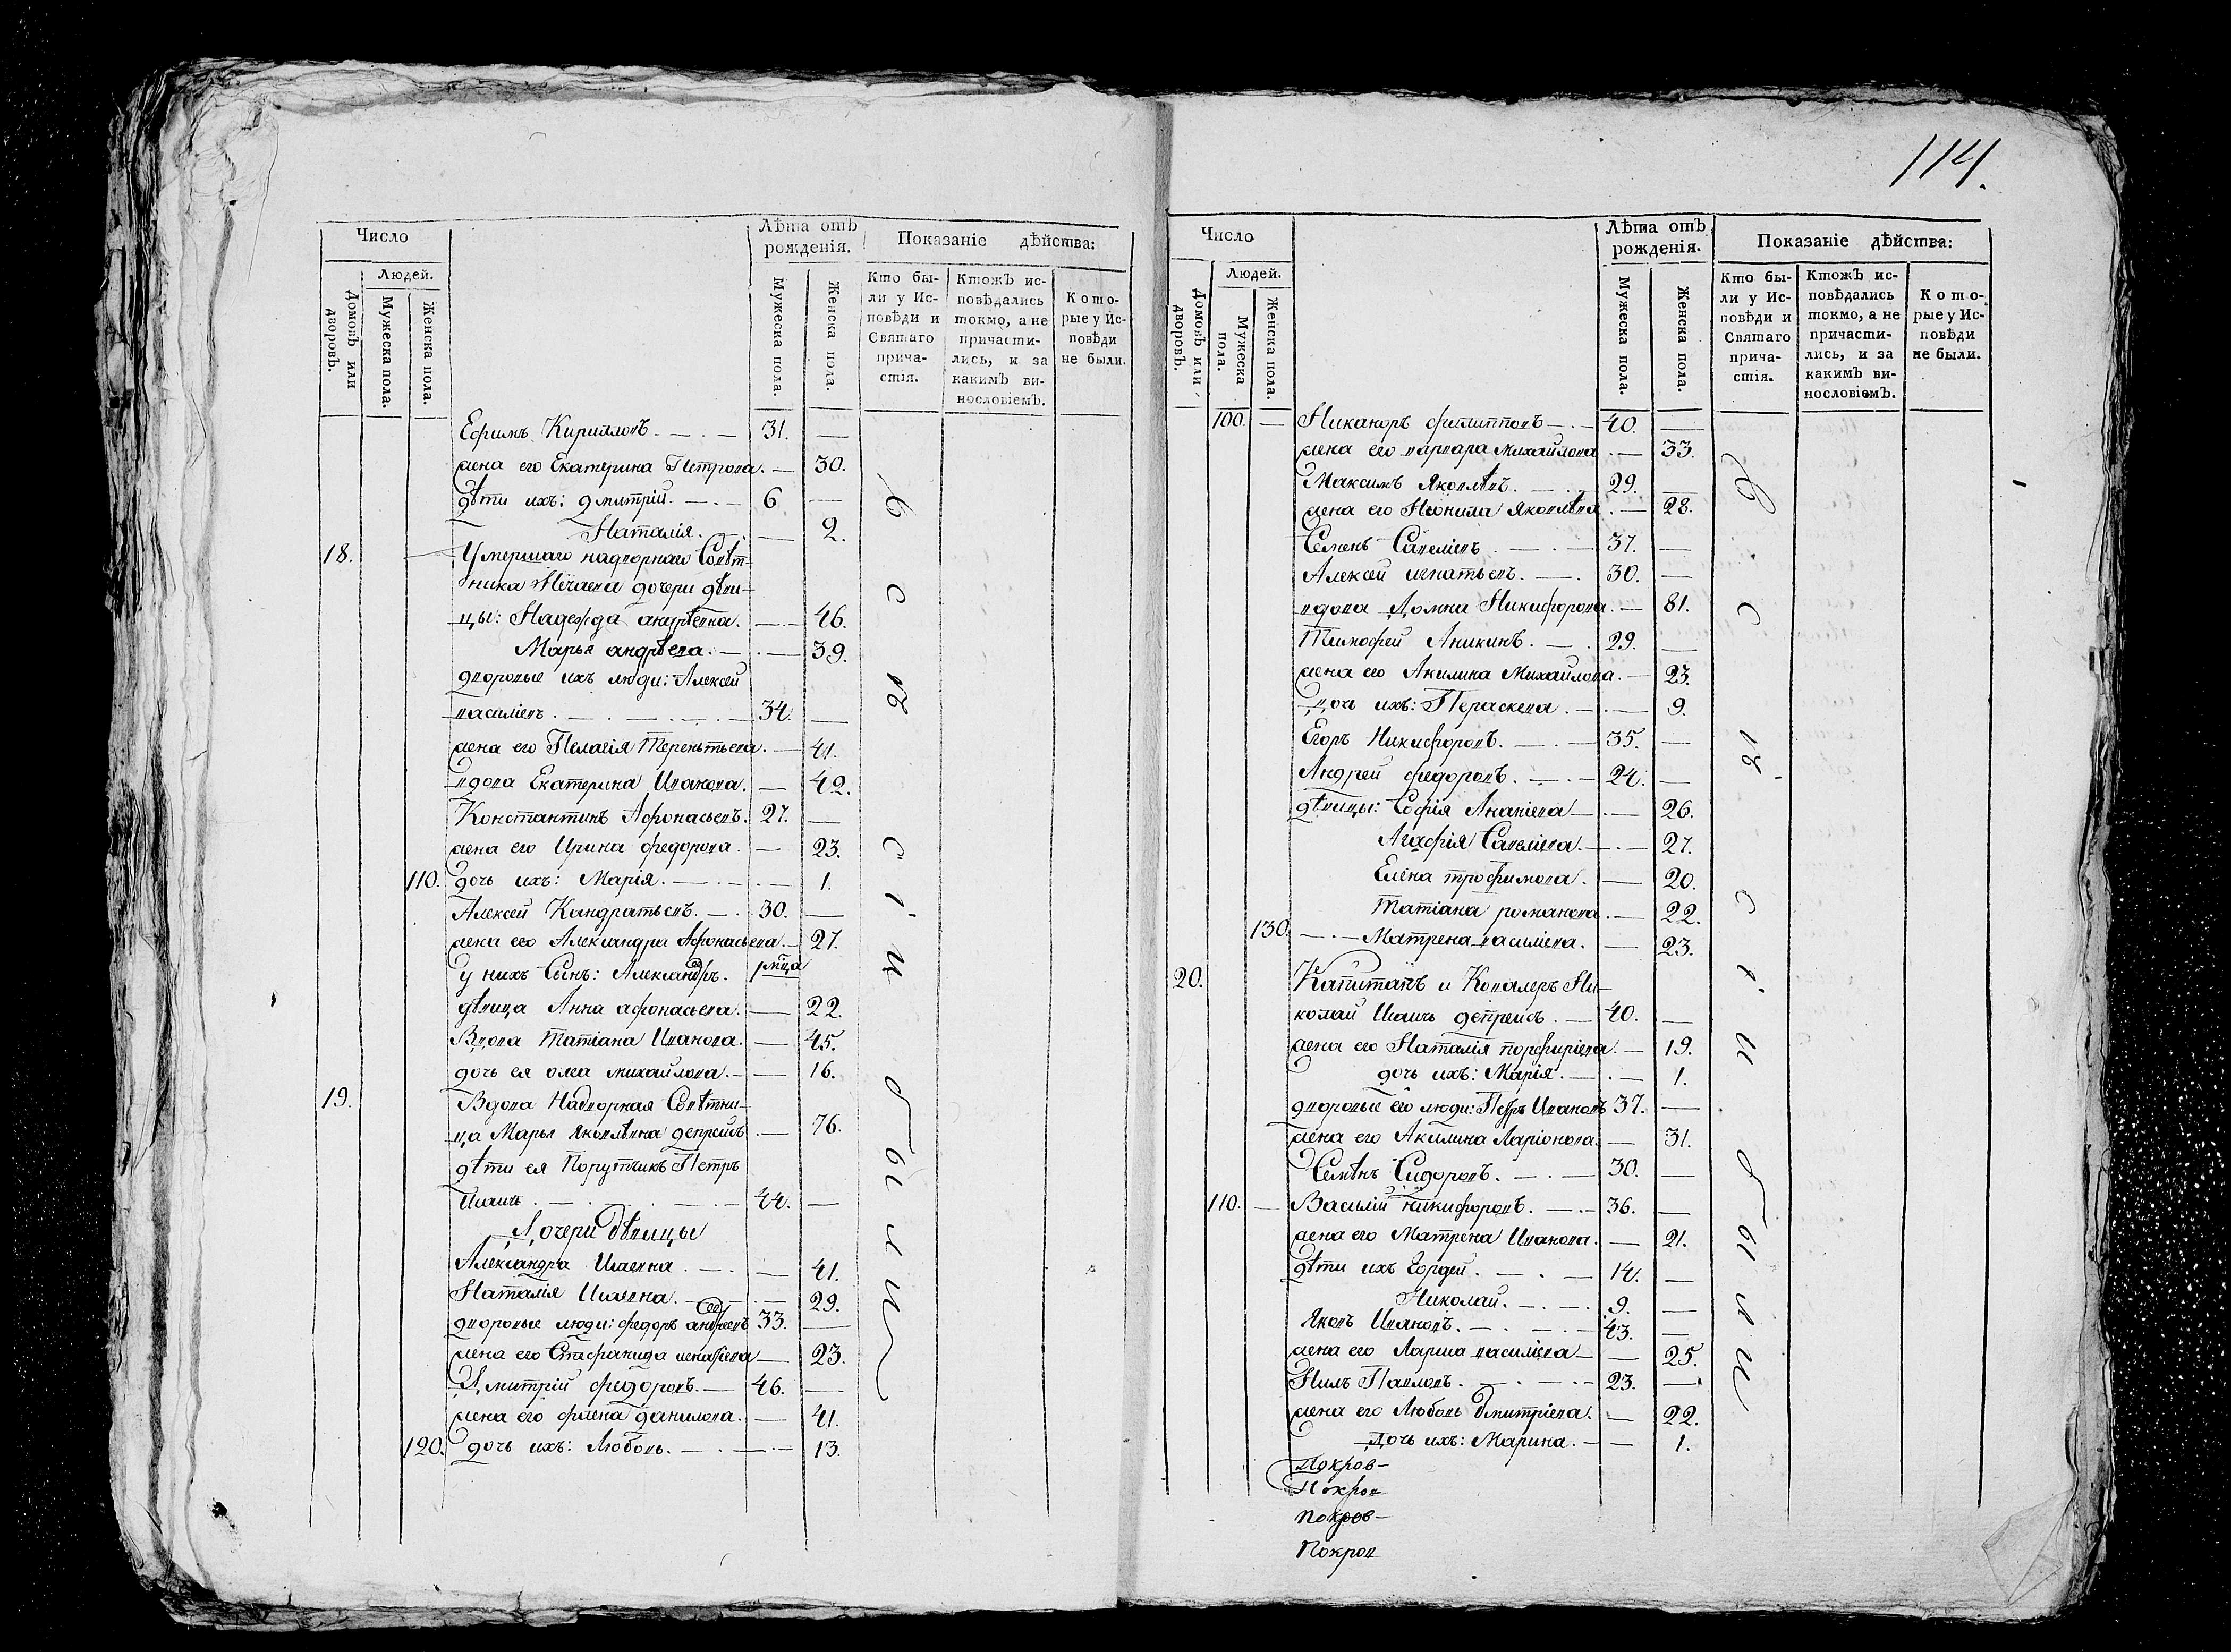 114.
Число
Людей.
Домовъ или дворовъ.
Мужеска пола.
Женска пола.
Лѣта отъ рожденія.
Мужеска пола.
Женска пола.
Показаніе дѣйства:
Кто бы-
ли у Ис-
повѣди и
Святаго
прича-
стія.
Ктожъ ис-
повѣдались
токмо, а не
причасти-
лись, и за
какимъ ви-
нословіемъ.
Кото-
рые у Ис-
повѣди
не были.
Ефимъ Кирилловъ. 31. —
жена его Екатерина Петрова. — 30.
дѣти ихъ: Дмитрій. 6 —
Наталія. — 2.
18. Умершаго надворнаго Совѣт-
ника Нечаева дочери дѣви-
цы: Надежда андрѣевна. — 46.
Марья андрѣева. — 39.
дворовые ихъ люди: Алексей
василіевъ. 34. —
жена его Пелагія Терентьева. — 41.
вдова Екатерина Иванова. — 42.
Константинъ Афонасьевъ. 27. —
жена его Ирина федорова. — 23.
110. дочь ихъ: Марія. — 1.
Алексей Кандратьевъ. 30. —
жена его Александра Афонасьева. — 27.
у нихъ Сынъ: Александръ.
дѣвица Анна афонасьева. — 22.
Вдова Татіана Иванова. — 45.
дочь ея олга михайлова. — 16.
19. Вдова Надворная Совѣтни-
ца Марья Яковлѣвна депрейсъ — 76.
дѣти ея Порутчикъ Петръ
Иванъ. 44. —
Дочери дѣвицы
Александра Ивавна. — 41.
Наталія Ивавна. — 29.
дворовые люди: федоръ андреевъ 33. —
жена его Стефанида — 23.
Дмитрій федоровъ. 46. —
жена его фіена данилова. — 41.
120. дочь ихъ: Любовь. — 13.
б с в с і и б ы л и
Число
Людей.
Домовъ или дворовъ.
Мужеска пола.
Женска пола.
Лѣта отъ рожденія.
Мужеска пола.
Женска пола.
Показаніе дѣйства:
Кто бы-
ли у Ис-
повѣди и
Святаго
прича-
стія.
Ктожъ ис-
повѣдались
токмо, а не
причасти-
лись, и за
какимъ ви-
нословіемъ.
Кото-
рые у Ис-
повѣди
не были.
100. — Никаноръ филипповъ 40. —
жена его варвара Михайлова. — 33.
Максимъ Яковлѣвъ. 29. —
жена его Неонила Яковлѣва. — 28.
Семенъ Савеліевъ 37. —
Алексей игнатьевъ. 30. —
вдова Домна Никифорова. — 81.
Тимофей Аникинъ. 29. —
жена его Акилина Михайлова. — 23.
дочь ихъ: Параскева. — 9.
Егоръ Никифоровъ. 35. —
Андрей федоровъ. 24. —
дѣвицы: Софія Ананіева — 26.
Агафія Савеліева. — 27.
Елена трофимова. — 20.
Татіана романова. — 22.
130. Матрена василіева. — 23.
20. Капитанъ и Кавалеръ Ни-
колай Иванъ депрейсъ. 40. —
жена его Наталія порфиріева. — 19.
дочь ихъ: Марія. — 1.
дворовые его люди: Петръ Ивановъ 37. —
жена его Акилина Ларіонова. — 31.
Семѣнъ Сидоровъ. 30. —
110. — Василій Никифоровъ. 36. —
жена его Матрена Иванова. — 21.
дѣти ихъ Гордей. 14. —
Николай. 9. —
Яковъ Ивановъ. 43. —
жена его Лариса василіева — 25.
Нилъ Павловъ. 23. —
жена его Любовь дмитріева. — 22.
дочь ихъ: Марина. — 1.
Покров-
Покров
покров-
Покров
с в с і и б ы л и